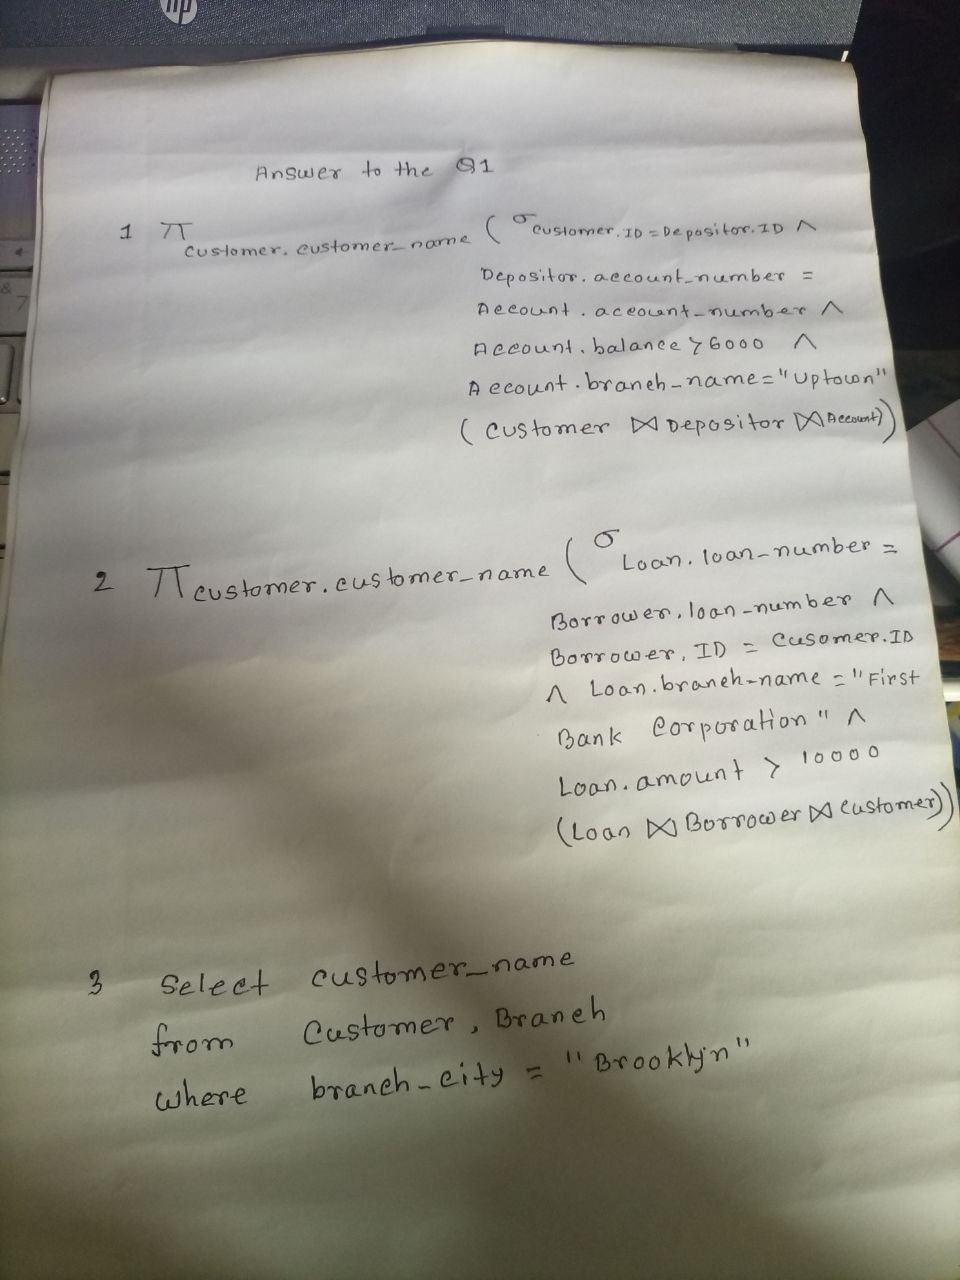 hp
Answer to the Q1
1 π customer.customer_name ( σ customer.ID = Depositor.ID ∧
Depositor.account_number =
Account.account_number ∧
Account.balance > 6000 ∧
Account.branch-name = "Uptown"
(Customer ⋈ Depositor ⋈ Account))
2 π customer.customer_name ( σ Loan.loan-number =
Borrower.loan-number ∧
Borrower.ID = Cusomer.ID
∧ Loan.branch-name = "First
Bank Corporation" ∧
Loan.amount > 10000
(Loan ⋈ Borrower ⋈ Customer))
3 Select customer_name
from Customer, Branch
where branch-city = "Brooklyn"
&
7